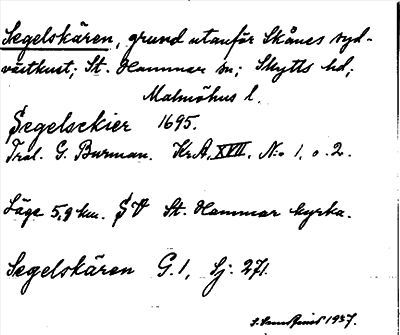 Segelskären, grund utanför Skånes syd-
västkust; St. Hammar sn; Skytts hd;
Malmöhus l.
Segelsckier 1695.
Tral. G. Burman. Kr.A. XVII, No 1, o. 2.
Läge 5,9 km. SV St. Hammar kyrka.
Segelskären G.1, Sj. 271.
1937.